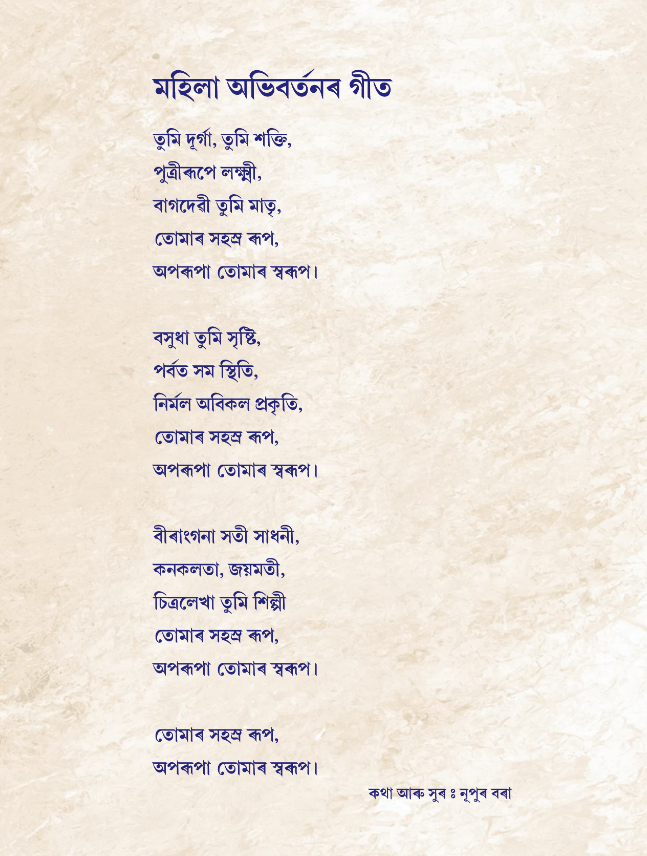 মহিলা অভিবৰ্তনৰ গীত
তুমি দূৰ্গা, তুমি শক্তি,
পুত্ৰীৰূপে লক্ষ্মী,
বাগদেৱী তুমি মাতৃ,
তোমাৰ সহস্ৰ ৰূপ,
অপৰূপা তোমাৰ স্বৰূপ।
বসুধা তুমি সৃষ্টি,
পৰ্বত সম স্থিতি,
নিৰ্মল অবিকল প্ৰকৃতি,
তোমাৰ সহস্ৰ ৰূপ,
অপৰূপা তোমাৰ স্বৰূপ।
বীৰাংগনা সতী সাধনী,
কনকলতা, জয়মতী,
চিত্ৰলেখা তুমি শিল্পী
তোমাৰ সহস্ৰ ৰূপ,
অপৰূপা তোমাৰ স্বৰূপ।
তোমাৰ সহস্ৰ ৰূপ,
অপৰূপা তোমাৰ স্বৰূপ।
কথা আৰু সুৰ ঃ নূপুৰ বৰা